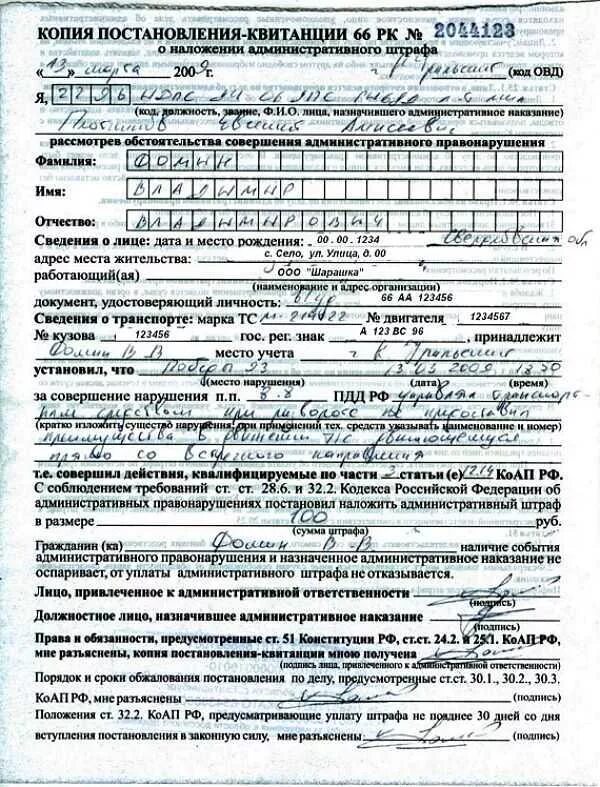 КОПИЯ ПОСТАНОВЛЕНИЯ-КВИТАНЦИИ 66 РК № 2044123
о наложении административного штрафа
« 13 » марта 2009 г. г. (код ОВД)
Я, 2296 ИДПС
(код, должность, звание, Ф.И.О. лица, назначившего административное наказание)
Евгений
рассмотрев обстоятельства совершения административного правонарушения
Фамилия: ФОМИН
Имя: ВЛАДИМИР
Отчество: ВЛАДИМИРОВИЧ
Сведения о лице: дата и место рождения: 00.00.1234 Свердловская обл
адрес места жительства: с. Село, ул. Улица, д. 00
работающий(ая) ООО "Шарашка"
(наименование и адрес организации)
документ, удостоверяющий личность: в/уд 66 АА 123456
Сведения о транспорте: марка ТС № двигателя 1234567
№ кузова 123456 гос. рег. знак А 123 ВС 96 , принадлежит
Фомин В В место учета г
установил, что Победы 93 13 03 2009
(место нарушения) (дата) (время)
за совершение нарушения п.п. 8.8 ПДД РФ управляя транспорт
ным средством при развороте не предоставил
(кратко изложить существо нарушения, при применении тех. средств указывать наименование и номер)
преимущества в движении т/с двигающемуся
прямо со встречного направления
т.е. совершил действия, квалифицируемые по части 3 статьи (е) 12.14 КоАП РФ.
С соблюдением требований ст. ст. 28.6 и 32.2. Кодекса Российской Федерации об
административных правонарушениях постановил наложить административный штраф
в размере 100 руб.
(сумма штрафа)
Гражданин (ка) Фомин В В наличие события
административного правонарушения и назначенное административное наказание не
оспаривает, от уплаты административного штрафа не отказывается.
Лицо, привлеченное к административной ответственности
(подпись)
Должностное лицо, назначившее административное наказание
(подпись)
Права и обязанности, предусмотренные ст. 51 Конституции РФ, ст.ст. 24.2. и 25.1. КоАП РФ,
мне разъяснены, копия постановления-квитанции мною получена
(подпись лица, привлеченного к административной ответственности)
Порядок и сроки обжалования постановления по делу, предусмотренные ст.ст. 30.1., 30.2., 30.3.
КоАП РФ, мне разъяснены (подпись)
Положения ст. 32.2. КоАП РФ, предусматривающие уплату штрафа не позднее 30 дней со дня
вступления постановления в законную силу, мне разъяснены (подпись)